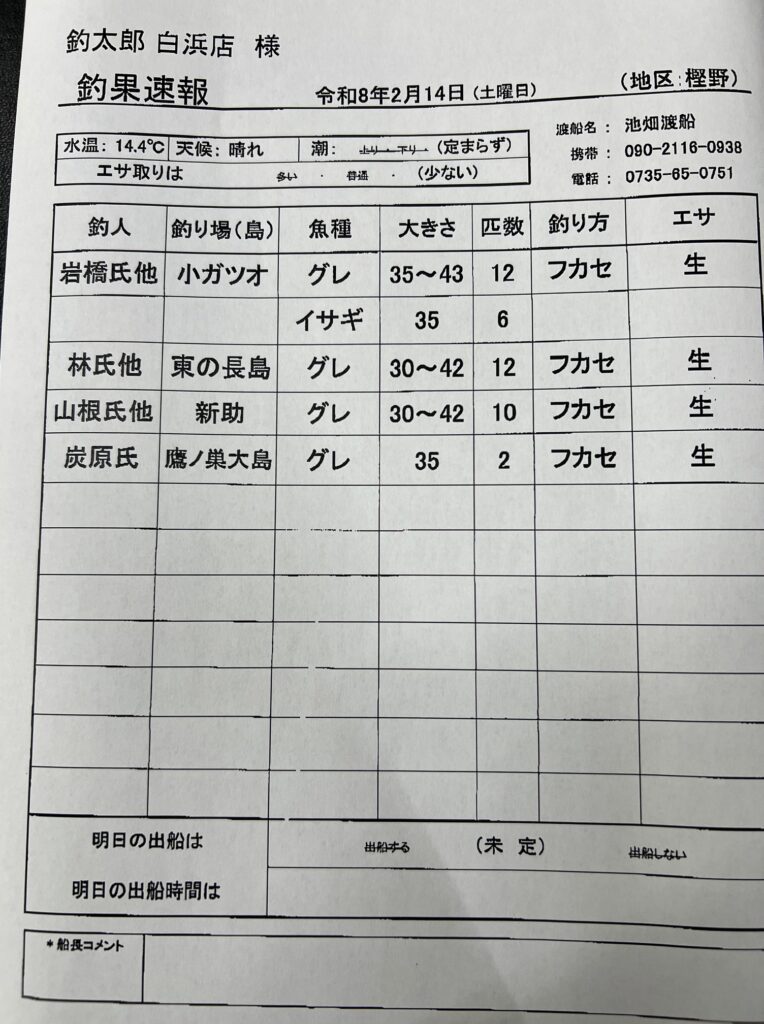 釣太郎 白浜店 様
釣果速報 令和8年2月14日(土曜日) (地区:樫野)
渡船名: 池畑渡船
携帯: 090-2116-0938
電話: 0735-65-0751
水温: 14.4℃ 天候: 晴れ 潮: 上り・下り・(定まらず)
エサ取りは 多い ・ 普通 ・ (少ない)
釣人 釣り場(島) 魚種 大きさ 匹数 釣り方 エサ
岩橋氏他 小ガツオ グレ 35～43 12 フカセ 生
イサギ 35 6
林氏他 東の長島 グレ 30～42 12 フカセ 生
山根氏他 新助 グレ 30～42 10 フカセ 生
炭原氏 鷹ノ巣大島 グレ 35 2 フカセ 生
明日の出船は 出船する (未 定) 出船しない
明日の出船時間は
*船長コメント